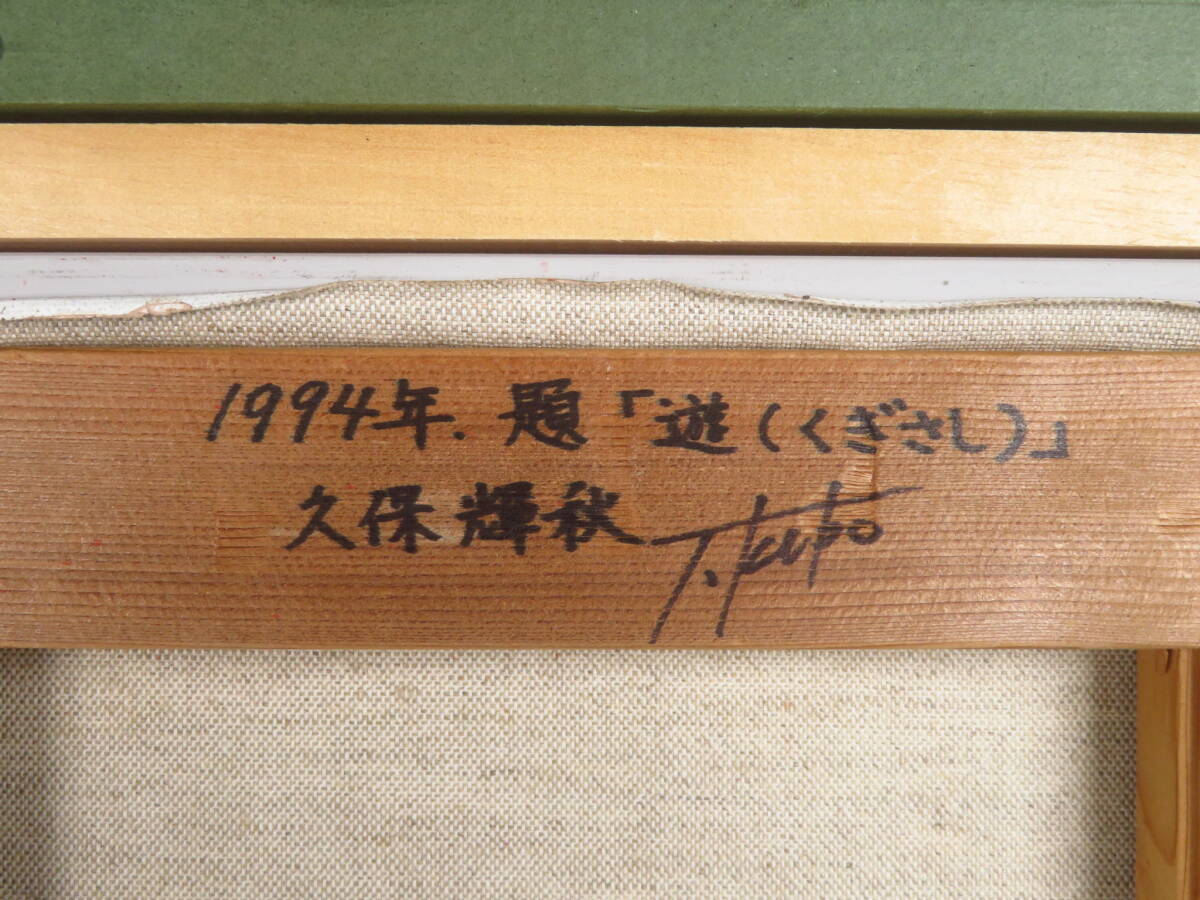 1994年. 題「遊(くぎさし)」
久保輝秋 T. Kubo